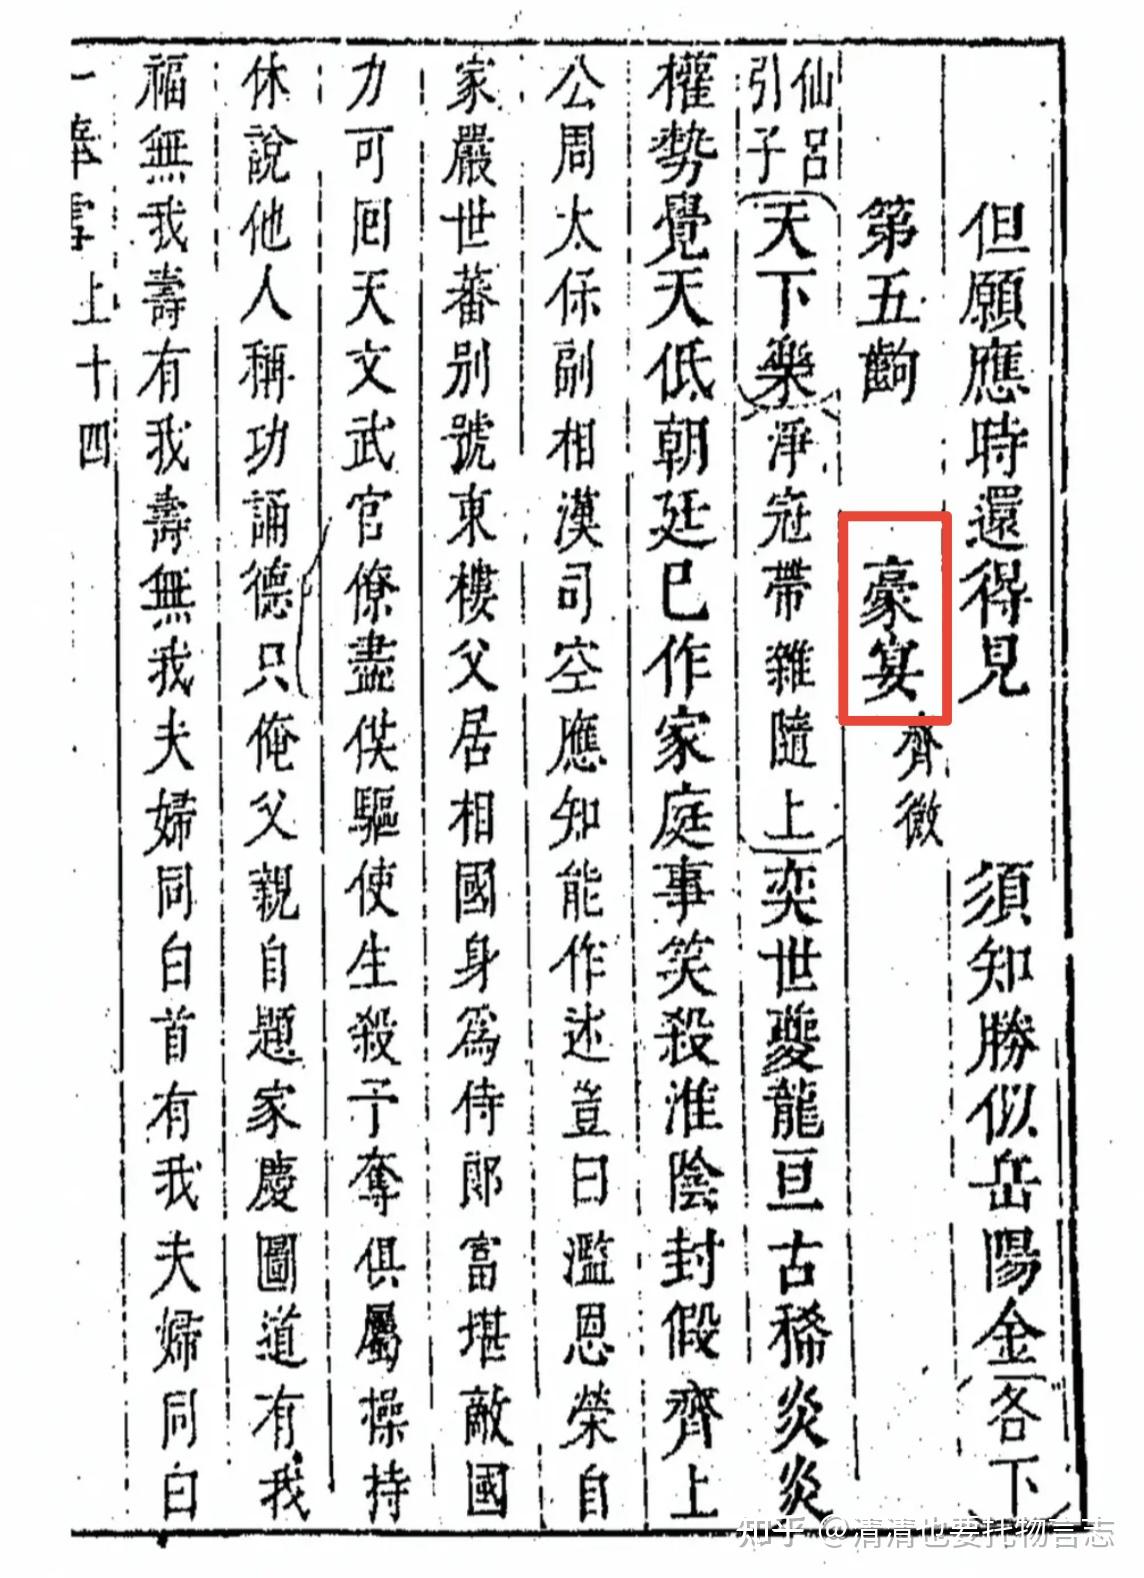 但願應時還得見　須知勝似岳陽金各下
第五齣　豪宴齊微
仙呂引子天下樂淨冠帶雜隨上奕世夔龍亘古稀炎炎
權勢覺天低朝廷已作家庭事笑殺淮陰封假齊上
公周太保副相漢司空應知能作述豈曰濫恩榮自
家嚴世蕃別號東樓父居相國身爲侍郎富堪敵國
力可回天文武官僚盡供驅使生殺予奪俱屬操持
休說他人稱功誦德只俺父親自題家慶圖道有我
福無我壽有我壽無我夫婦同白首有我夫婦同白
一捧雪上十四
知乎 @清清也要托物言志